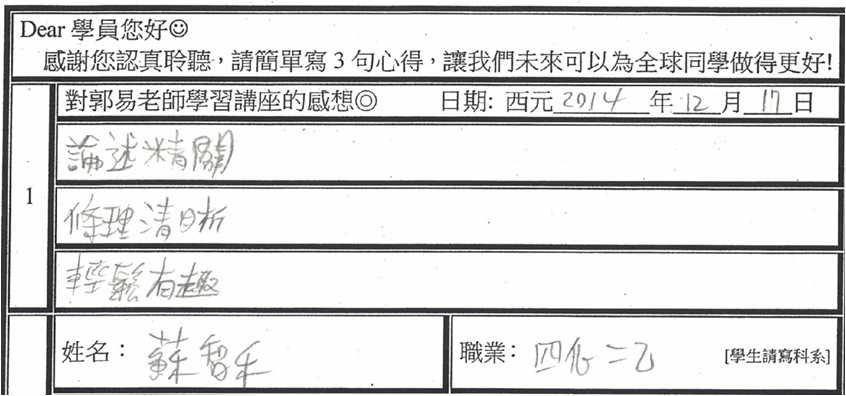 Dear 學員您好☺
感謝您認真聆聽，請簡單寫 3 句心得，讓我們未來可以為全球同學做得更好!
對郭易老師學習講座的感想◎ 日期: 西元2014年12月17日
論述精闢
1
條理清晰
輕鬆有趣
姓名： 蘇智禾 職業： 四化二乙 [學生請寫科系]